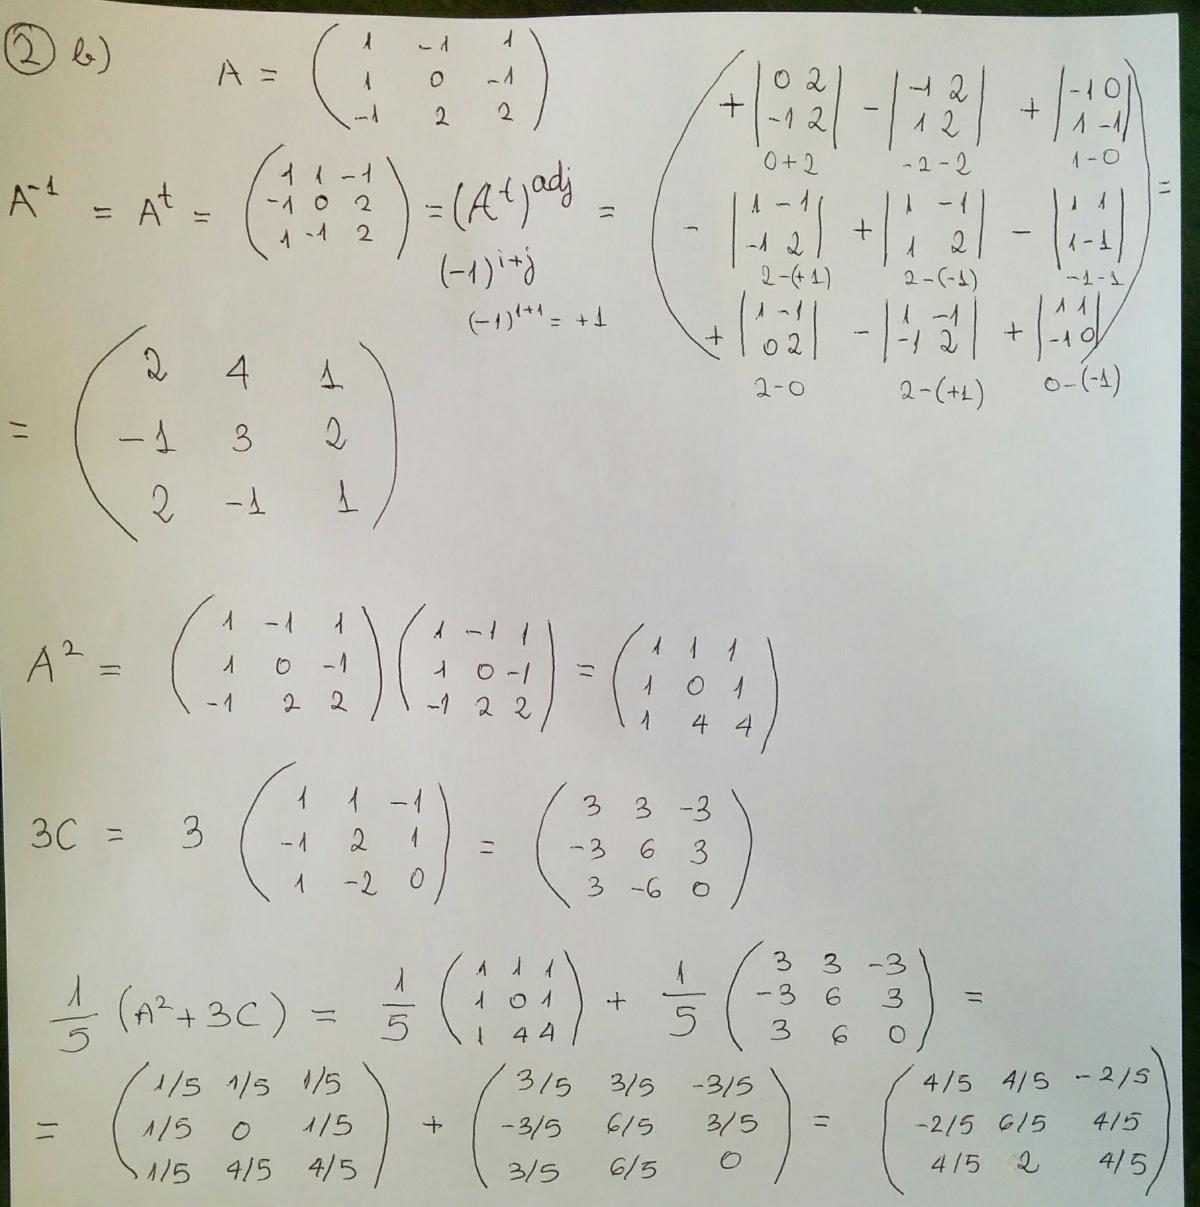 2 b) A = ( 1 -1 1 ; 1 0 -1 ; -1 2 2 )
A^-1 = A^t = ( 1 1 -1 ; -1 0 2 ; 1 -1 2 ) = (A^t)^adj = ( +|0 2 ; -1 2| -|-1 2 ; 1 2| +|-1 0 ; 1 -1| ; -|1 -1 ; -1 2| +|1 -1 ; 1 2| -|1 1 ; 1 -1| ; +|1 -1 ; 0 2| -|1 -1 ; -1 2| +|1 1 ; -1 0| ) =
0+2 -2-2 1-0
2-(+1) 2-(-1) -1-1
2-0 2-(+1) 0-(-1)
(-1)^i+j
(-1)^1+1 = +1
= ( 2 4 1 ; -1 3 2 ; 2 -1 1 )
A^2 = ( 1 -1 1 ; 1 0 -1 ; -1 2 2 ) ( 1 -1 1 ; 1 0 -1 ; -1 2 2 ) = ( 1 1 1 ; 1 0 1 ; 1 4 4 )
3C = 3 ( 1 1 -1 ; -1 2 1 ; 1 -2 0 ) = ( 3 3 -3 ; -3 6 3 ; 3 -6 0 )
1/5 (A^2+3C) = 1/5 ( 1 1 1 ; 1 0 1 ; 1 4 4 ) + 1/5 ( 3 3 -3 ; -3 6 3 ; 3 6 0 ) =
= ( 1/5 1/5 1/5 ; 1/5 0 1/5 ; 1/5 4/5 4/5 ) + ( 3/5 3/5 -3/5 ; -3/5 6/5 3/5 ; 3/5 6/5 0 ) = ( 4/5 4/5 -2/5 ; -2/5 6/5 4/5 ; 4/5 2 4/5 )